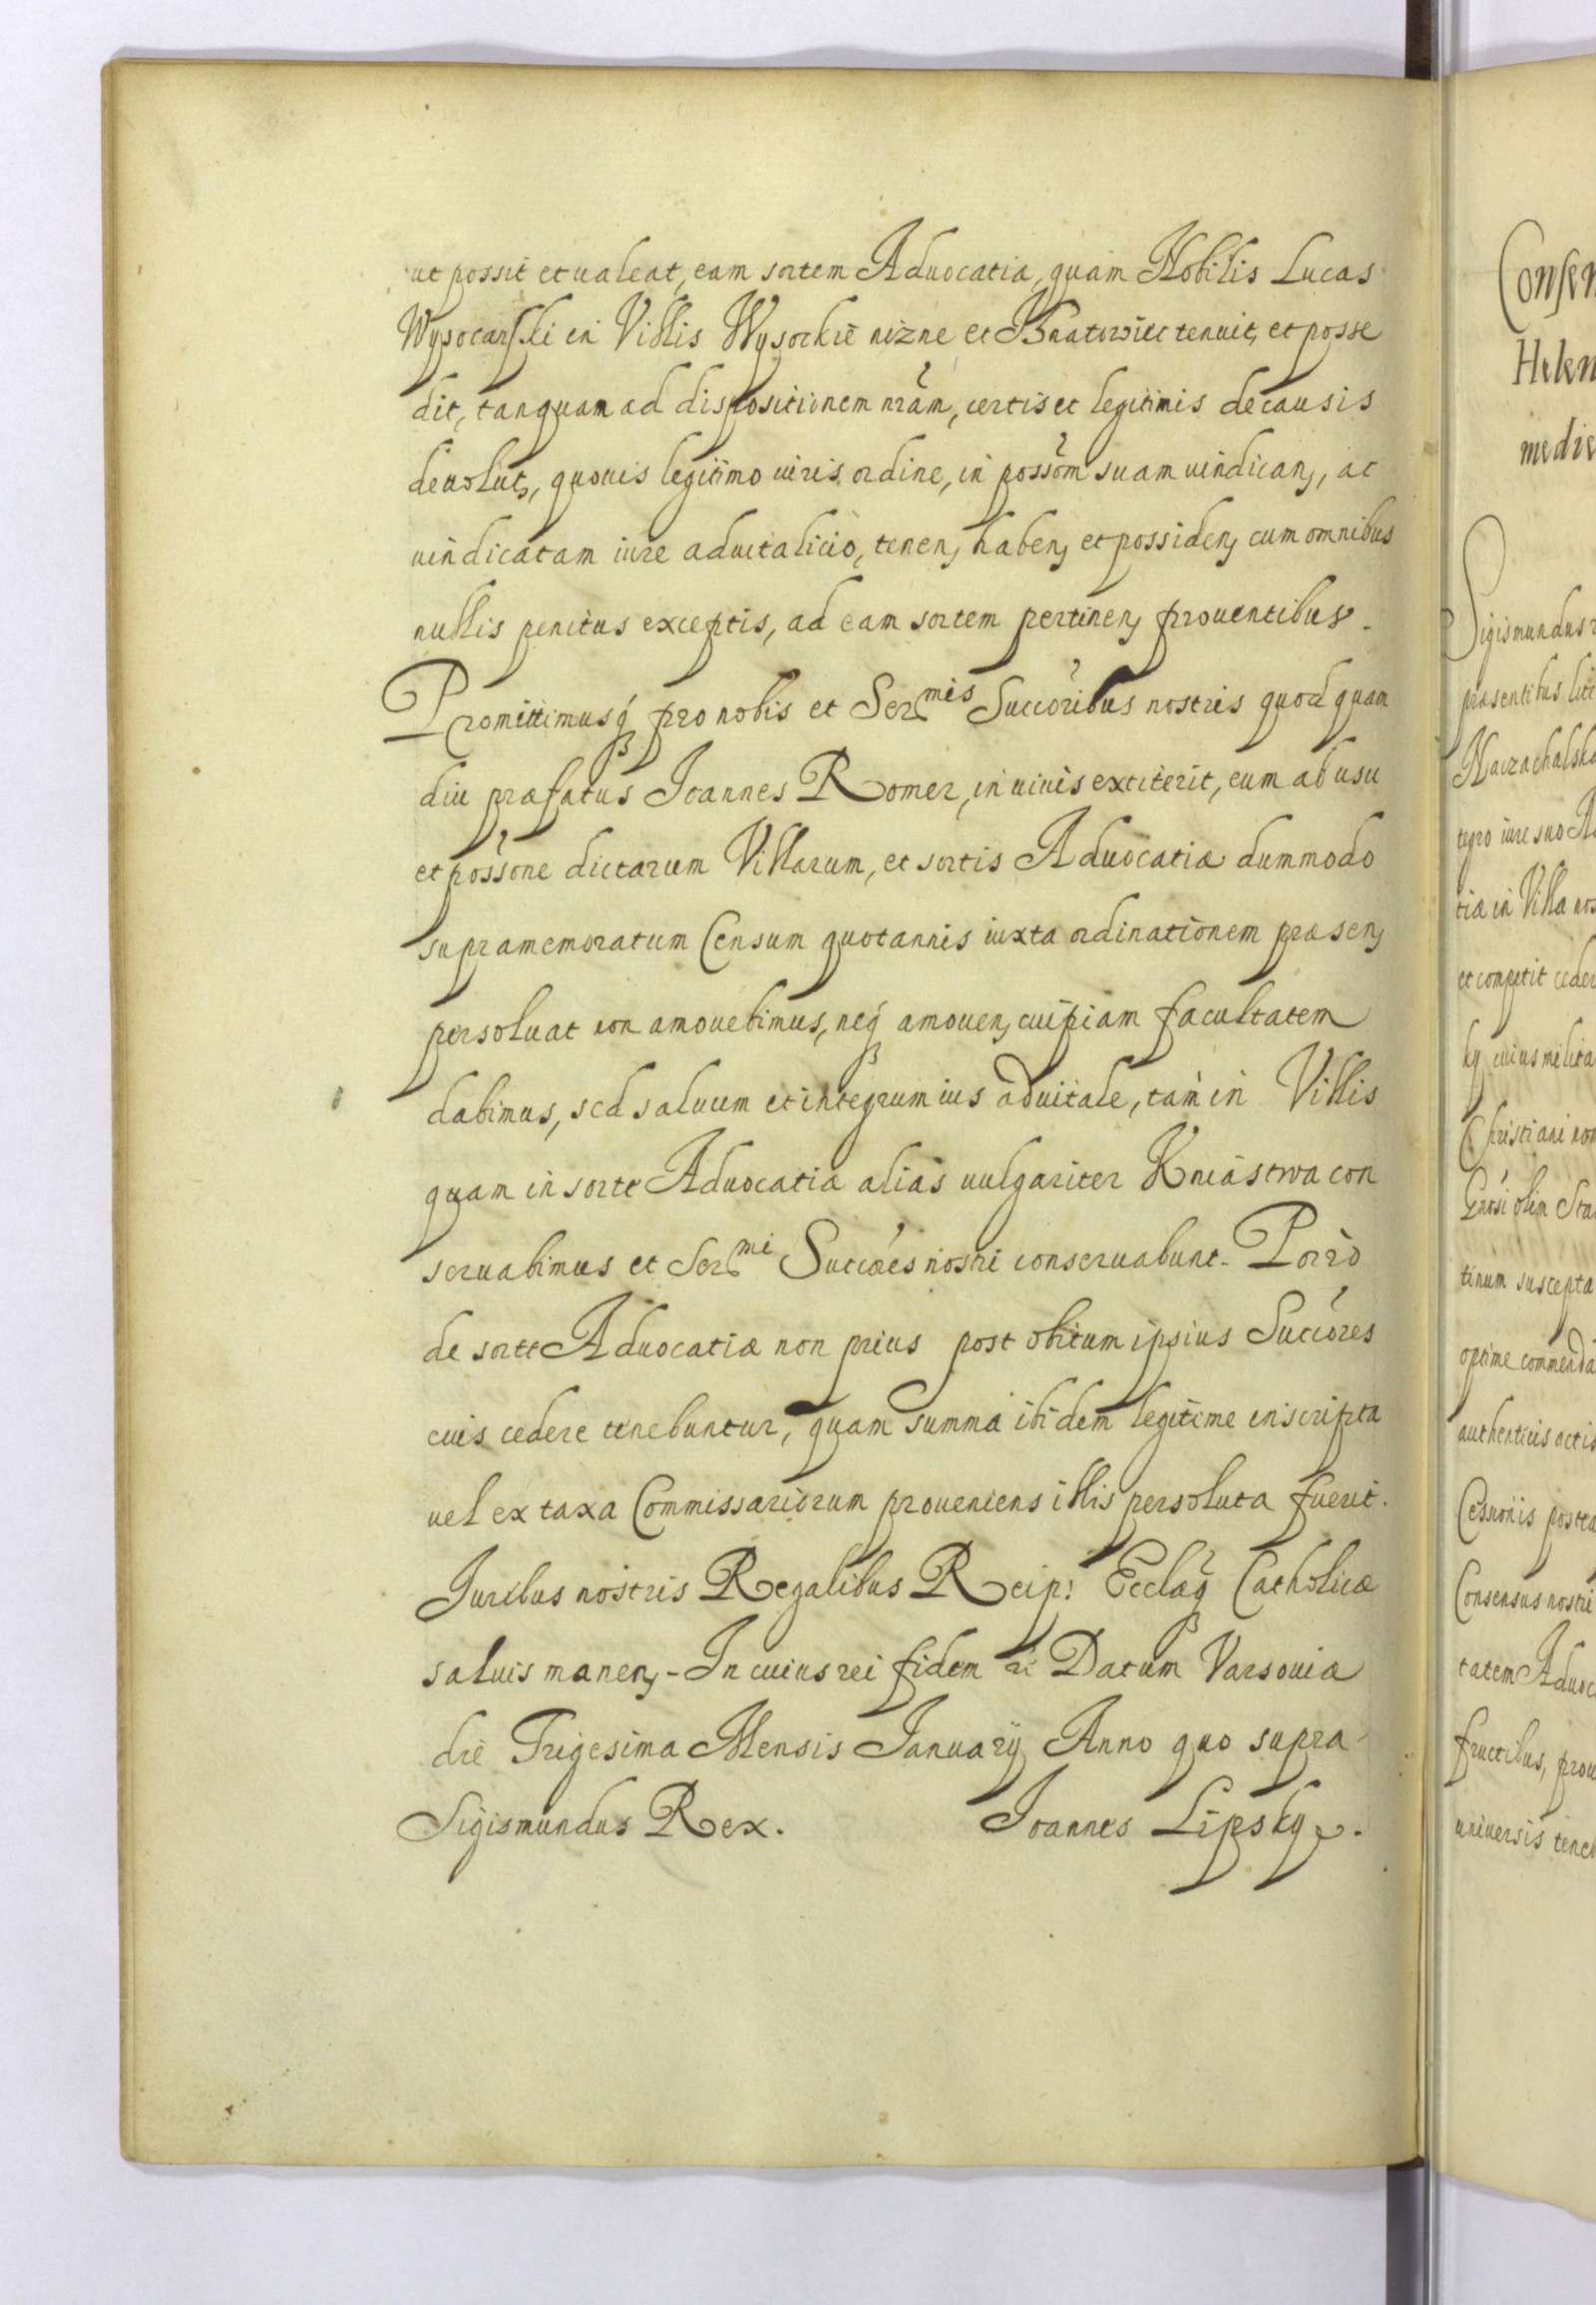 ut possit et ualeat, eam sortem Aduocatiæ, quam Nobilis Lucas
Wysocanski in Villis Wysockie nizne et Bnatowiec tenuit, et posse
dit, tanquam ad dispositionem nrãm, certis et legitimis de causis
deuolut, quouis legitimo iuris ordine, in possõm suam uindican, ac
uindicatam iure aduitalicio, tenen, haben, et possiden, cum omnibus
nullis penitus exceptis, ad eam sortem pertinen, prouentibus.
Promittimusq pro nobis et Sermis Succõribus nostris quod quam
diu præfatus Joannes Romer, in uiuis extiterit, eum ab usu
et possone dictarum Villarum, et sortis Aduocatiæ dummodo
supramemoratum Censum quotannis iuxta ordinationem præsen,
persoluat non amouebimus, neq amouen, cuipiam facultatem
dabimus, sed saluum et integrum ius aduitale, tam in Villis
quam in sorte Aduocatiæ alias uulgariter Kniastwa con
seruabimus et Sermi Succores nostri conseruabunt. Porrò
de sorte Aduocatiæ non prius post obitum ipsius Succores
eius cedere tenebuntur, quam summa ibidem legitime inscripta
uel ex taxa Commissariorum proueniens illis persoluta fuerit.
Juribus nostris Regalibus Reip: Ecclæq Catholicæ
saluis manen, - In cuius rei fidem Datum Varsouiæ
die Trigesima Mensis Januarij Anno quo supra
Sigismundus Rex. Joannes Lipsky.
Helen
medie
Sigismundus
præsentibus lite
tegro iure suo
tiæ in Villa nos
et competit ceder
Christiani nom
olim Sta
tinum suscepta
optime commenda
authenticis actis
postea
Consensus nostri
tatem Aduoc
fructibus, prou
uniuersis teneb